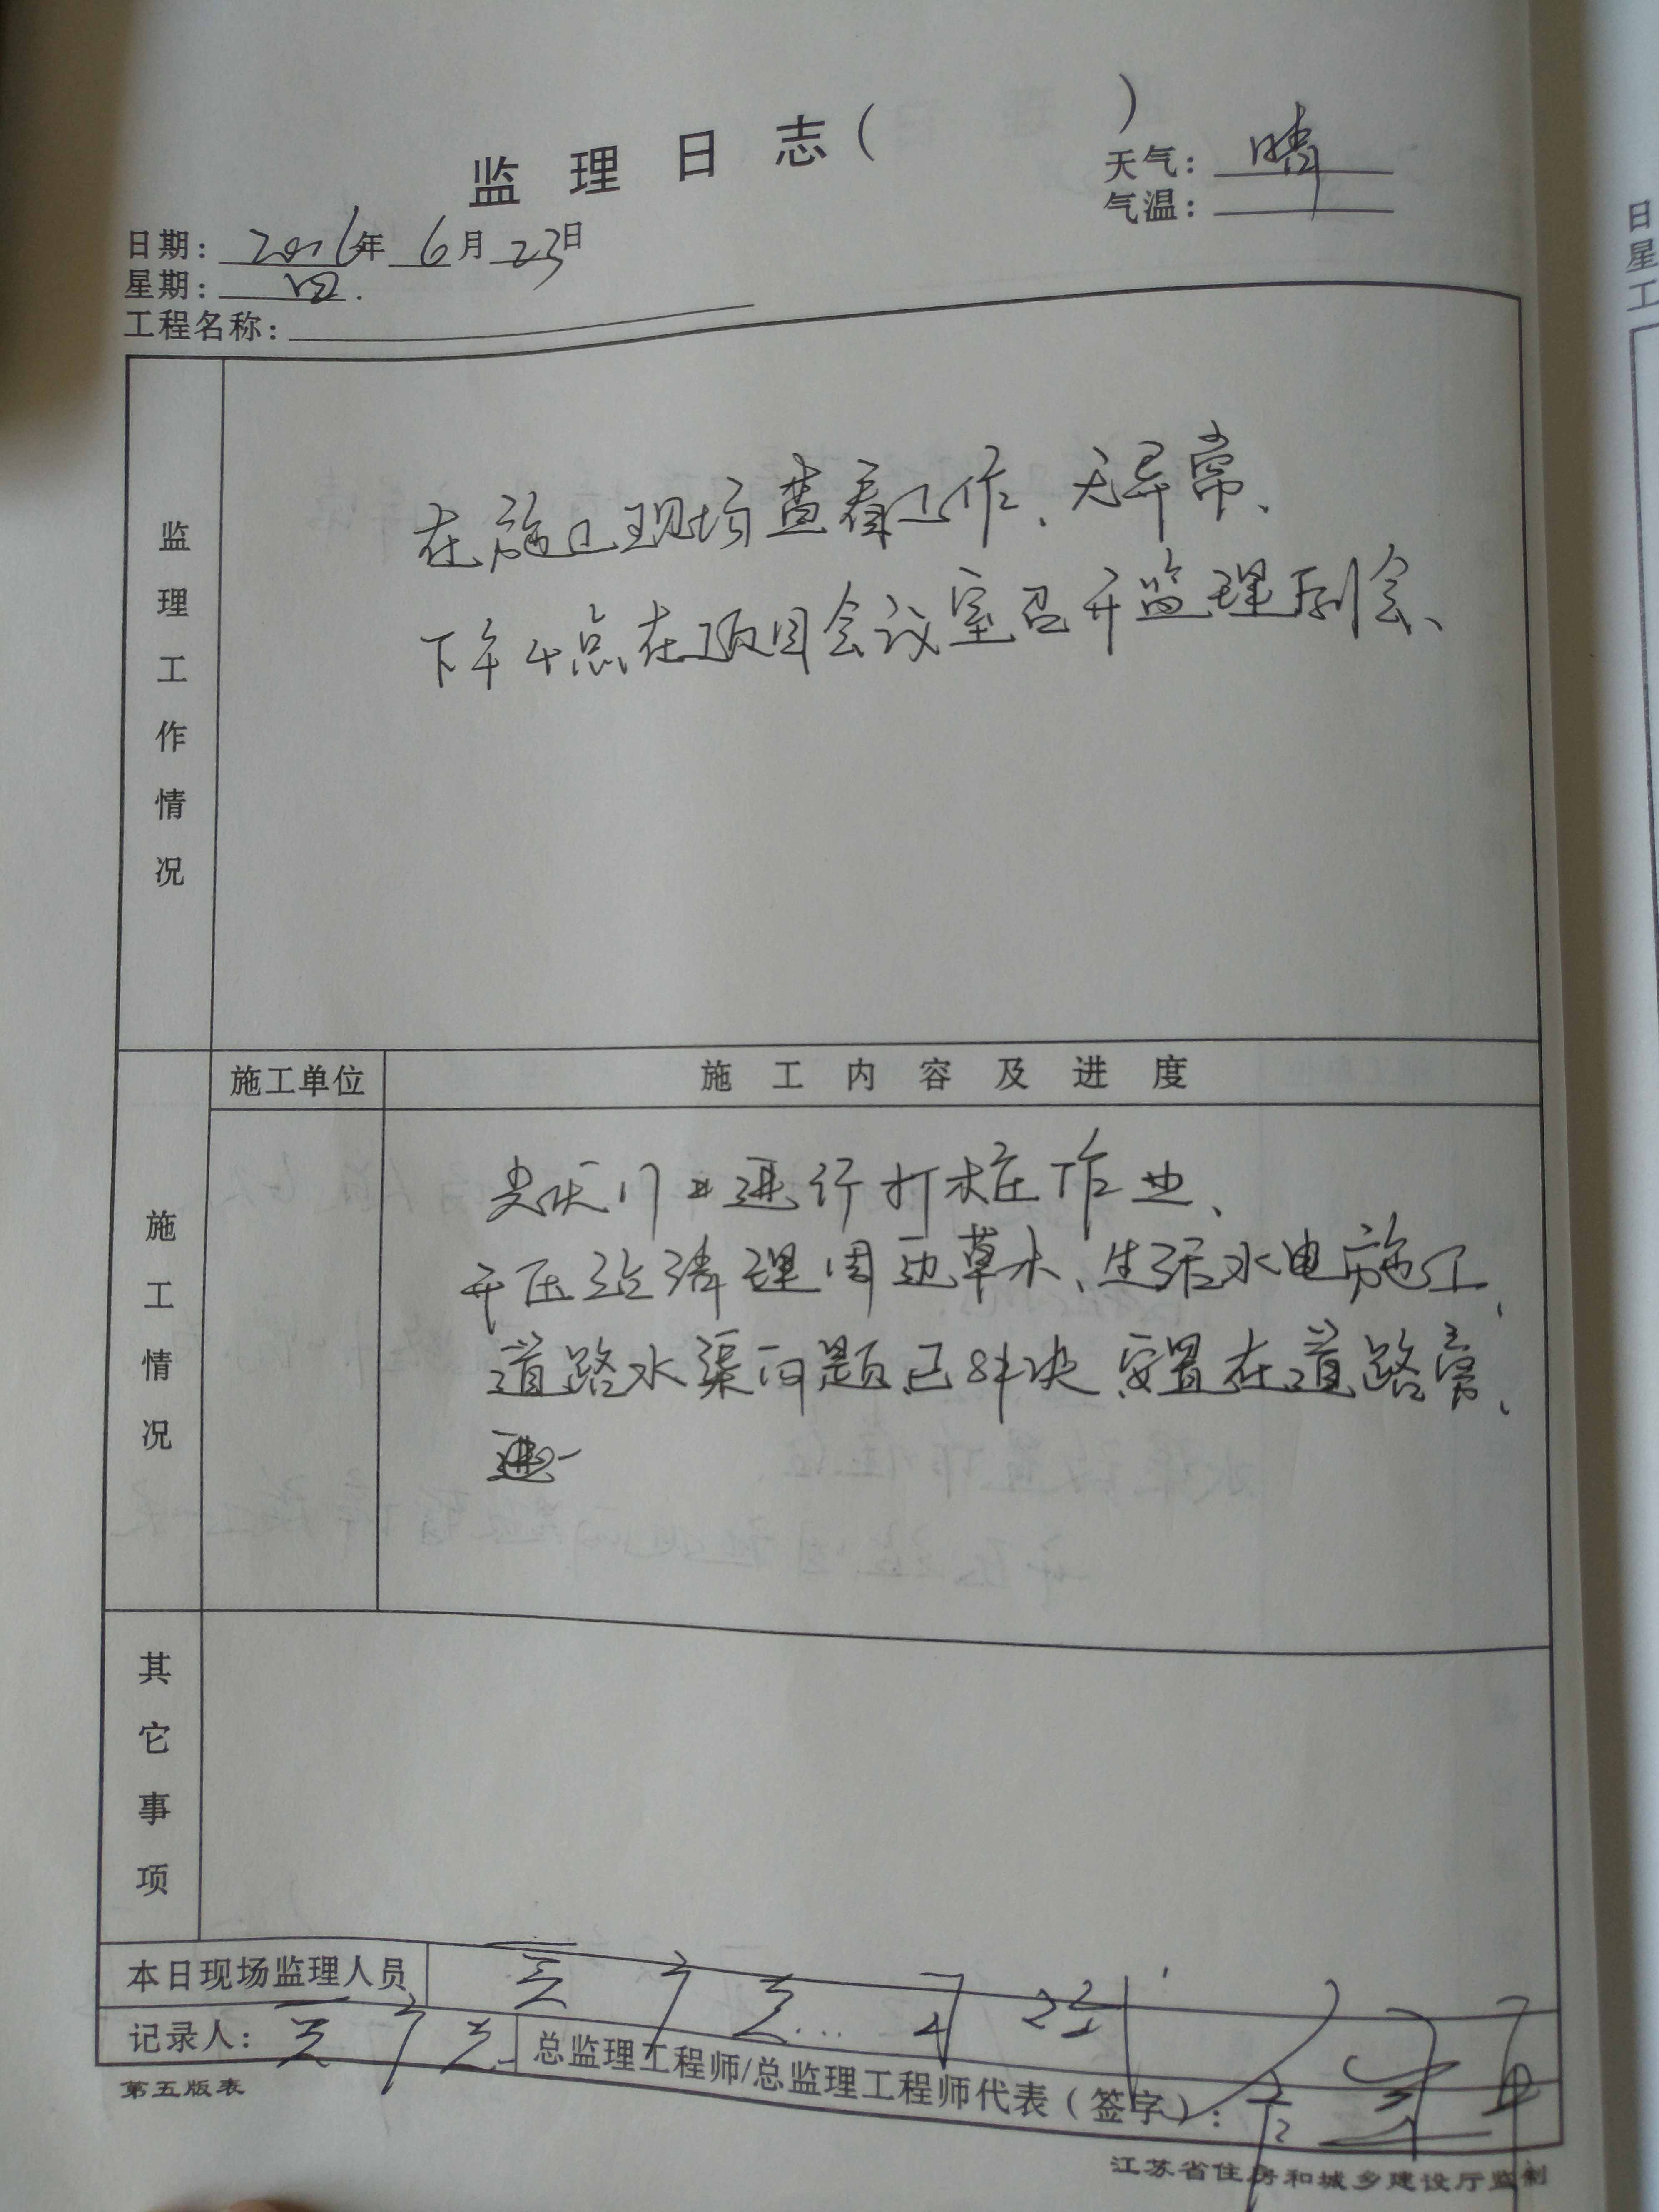 监理日志(    )
天气：晴
气温：
日期：2016年6月23日
星期：四.
工程名称：
监理工作情况
在施工现场查看工作、无异常、
下午4点在项目会议室召开监理例会、
施工单位
施工内容及进度
施工情况
进行打桩作业、
开压站清理周边草木、生活水电施工、
道路水渠问题已解决 安置在道路旁、
其它事项
本日现场监理人员
记录人：
总监理工程师/总监理工程师代表（签字）：
第五版表
江苏省住房和城乡建设厅监制
日
星
工